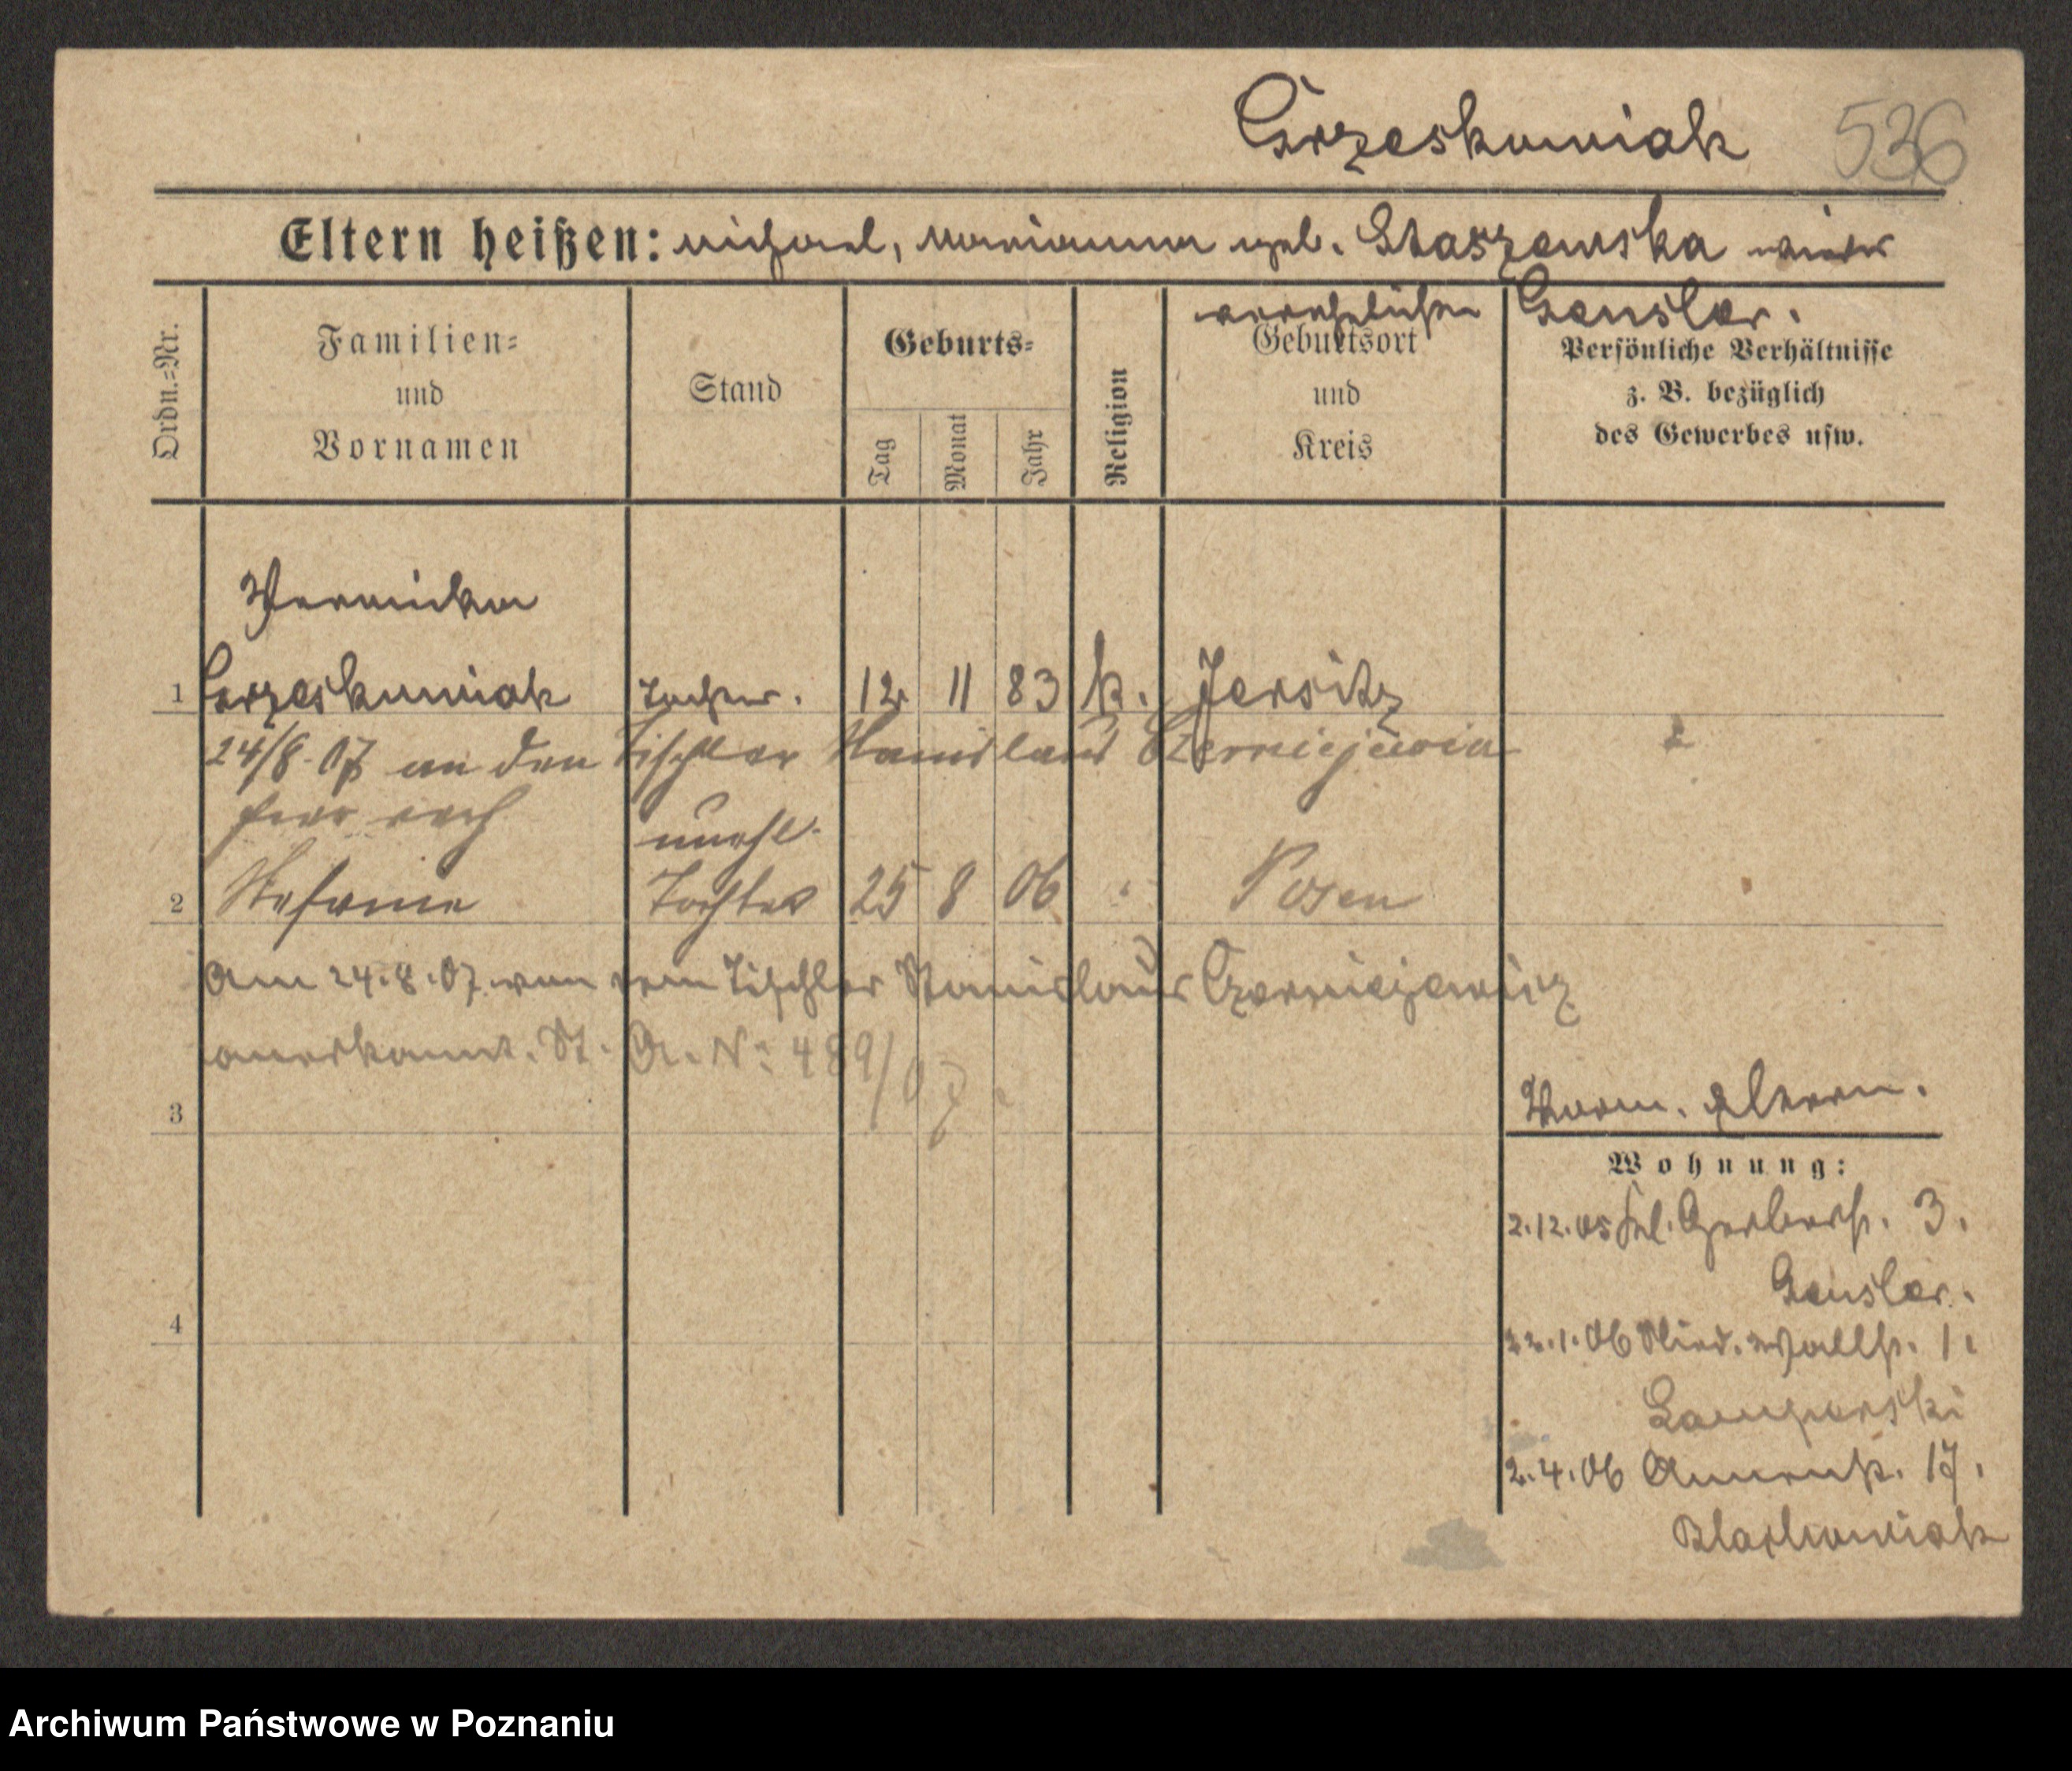 Grzeskowiak 536
Eltern heißen: Michael, Marianna geb. Staszewska wieder
verehelichte Gensler.
Ordn.=Nr.
Familien=
und
Vornamen
Stand
Geburts=
Tag
Monat
Jahr
Religion
Geburtsort
und
Kreis
Persönliche Verhältnisse
z. B. bezüglich
des Gewerbes usw.
Veronika
1 Grzeskowiak Tochter. 12 11 83 k. Jersitz
24/8. 07 an den Tischler Stanislaus
hier verh
unehl.
2 Stefania Tochter 25 8 06 Posen
Am 24.8.07 von dem Tischler Stanislaus Czerniejewicz
anerkannt. St. A. No: 489/07.
3
Verm. Eltern.
Wohnung:
2.12.05 Gerberst. 3.
Gensler.
4
22.1.06 Wallst. 1.
2.4.06 17.
Archiwum Państwowe w Poznaniu